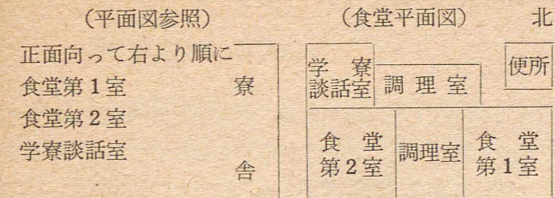 (平面図参照)
正面向って右より順に
食堂第1室
食堂第2室
学寮談話室
寮
舎
(食堂平面図)
北
学寮
談話室
調理室
便所
食堂
第2室
調理室
食堂
第1室